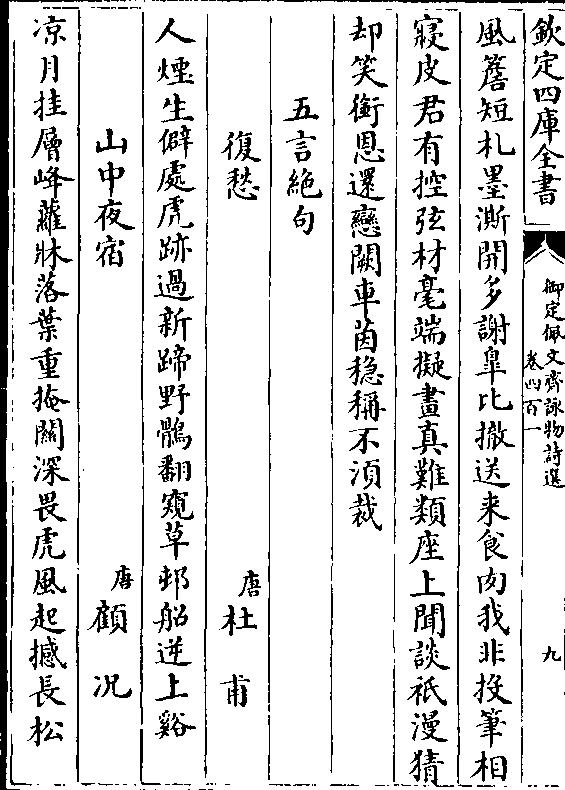 欽定四庫全書
御定佩文齊詠物詩選
卷四百一
九
風簷短札墨澌開多謝臯比撤送来食肉我非投筆相
寢皮君有控弦材毫端擬畫真難類座上聞談祇漫猜
却笑銜恩還戀闕車茵穏稱不湏裁
五言絶句
復愁 唐杜甫
人煙生僻處虎跡過新蹄野鶻翻窺草邨船逆上谿
山中夜宿 唐顧况
凉月挂層峰蘿牀落葉重掩關深畏虎風起撼長松